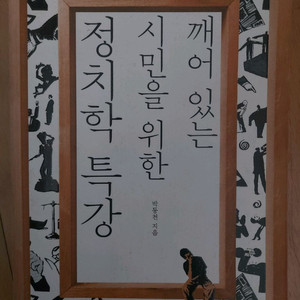 깨어 있는
시민을 위한
정치학 특강
박동천 지음